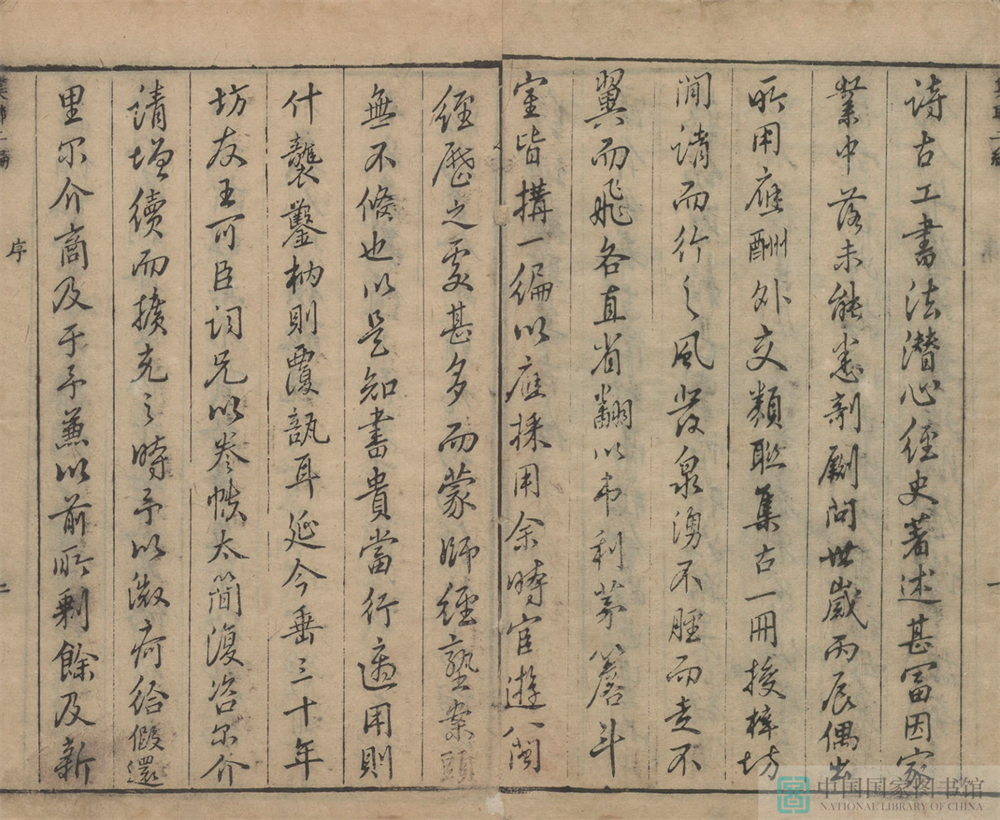 詩古工書法潛心經史著述甚富因家
業中落未能悉剞劂問世歲丙辰偶出
所用應酬外交類聯集古一冊授梓坊
間請而行之風發泉湧不脛而走不
翼而飛各直省翻以弗利茅簷斗
室皆搆一編以應採用余時宦遊八閩
經歷之處甚多而蒙師經塾案頭
無不俻也以是知書貴當行適用則
什襲鑿枘則覆瓿耳延今垂三十年
坊友王可臣詞兄以卷帙太簡復咨尔介
請增續而擴充之時予以微疴給假還
里尔介商及于予蒐以前所剩餘及新
序
二
中国国家图书馆
NATIONAL LIBRARY OF CHINA